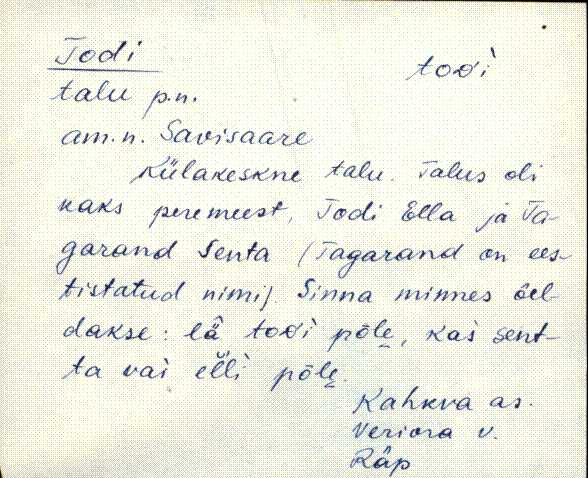 Todi
toði
talu p.n.
am.n. Savisaare
Külakeskne talu. Talus oli
kaks peremeest, Todi Ella ja Ta-
garand Senta (Tagarand on ees-
tistatud nimi). Sinna minnes öel-
dakse: lǟ toði pōle̬, kas sent-
ta vai el̆li pōle̬.
Kahkva as.
Veriora v.
Räp